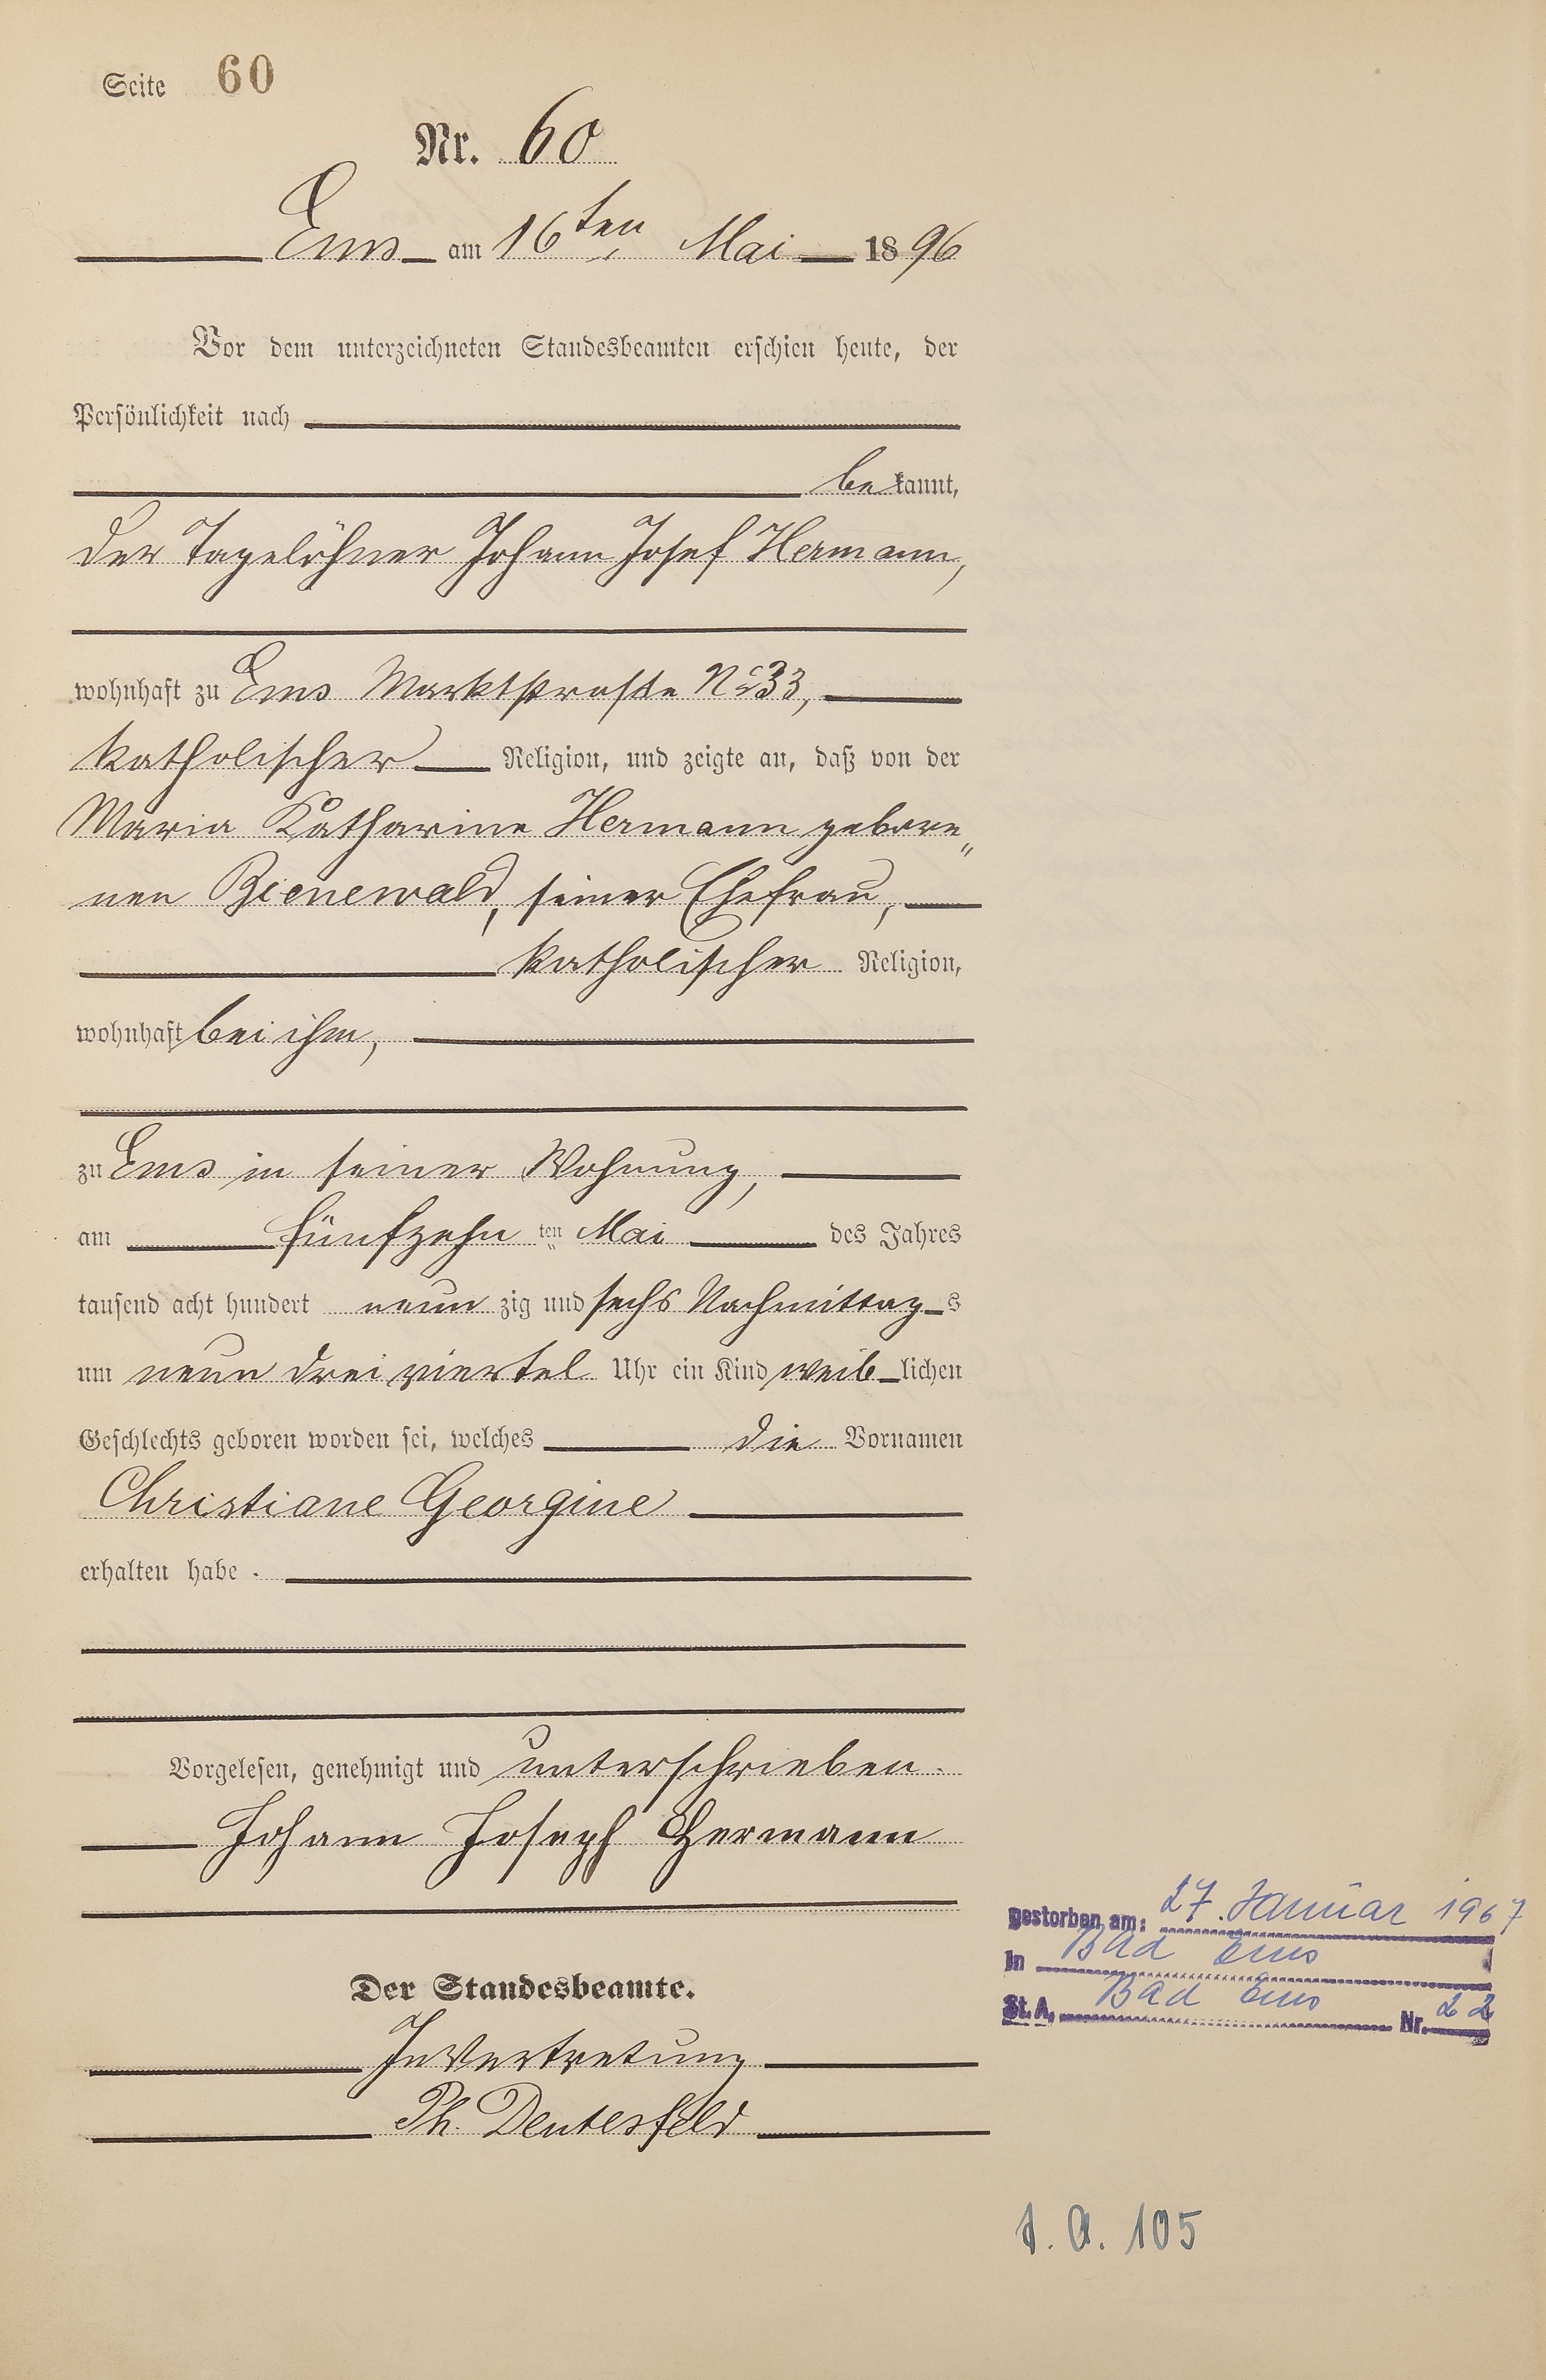 Seite 60
Nr. 60
Ems am 16ten Mai 1896
Vor dem unterzeichneten Standesbeamten erschien heute, der
Persönlichkeit nach
bekannt,
der Tagelöhner Johann Josef Hermann,
wohnhaft zu Ems Marktstraße No 33,
katholischer Religion, und zeigte an, daß von der
Maria Katharine Hermann gebore„
nen Bienewald, seiner Ehefrau,
katholischer Religion,
wohnhaft bei ihm,
zu Ems in seiner Wohnung,
am fünfzehn ten Mai des Jahres
tausend acht hundert neun zig und sechs Nachmittags
um neun drei viertel Uhr ein Kind weiblichen
Geschlechts geboren worden sei, welches die Vornamen
Christiane Georgine
erhalten habe.
Vorgelesen, genehmigt und unterschrieben.
Johann Joseph Hermann
Der Standesbeamte.
In Vertretung
Ph. Deutesfeld
gestorben am: 27. Januar 1967
in Bad Ems
St. A. Bad Ems Nr. 22
S. A. 105